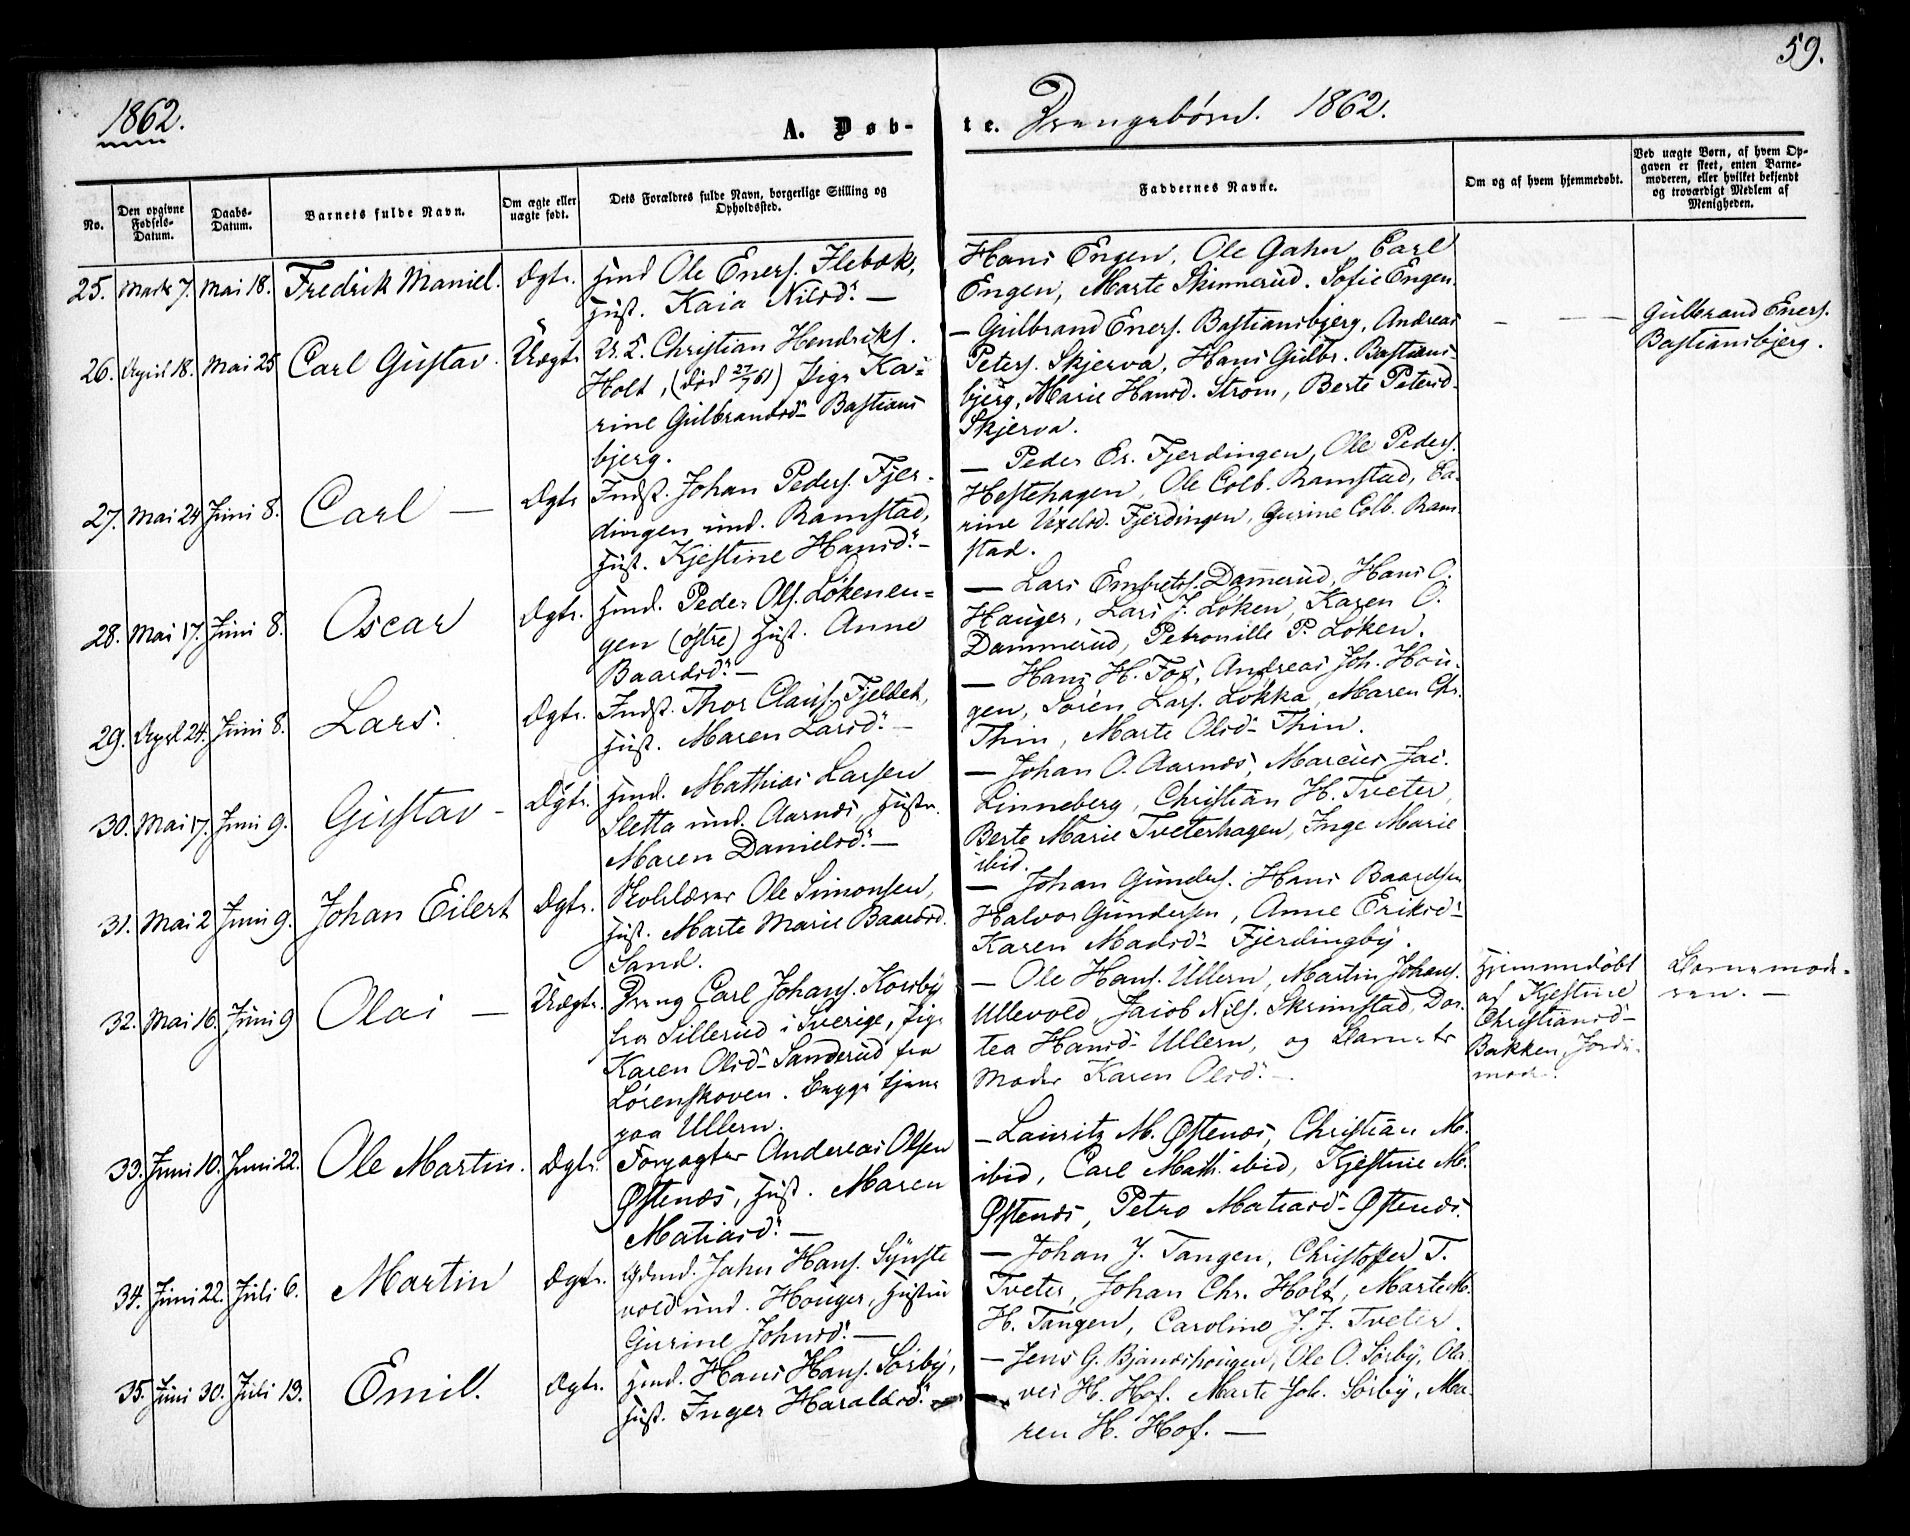 59.
1862.
A. Døb-
te. Drengebørn. 1862.
No.
Den opgivne Fødsels-Datum.
Daabs-Datum.
Barnets fulde Navn.
Om ægte eller uægte født.
Dets Forældres fulde Navn, borgerlige Stilling og Opholdssted.
Faddernes Navne.
Om og af hvem hjemmedøbt.
Ved uægte Børn, af hvem Opgaven er skeet, enten Barnemoderen, eller hvilket bekjendt og troværdigt Medlem af Menigheden.
25. Marts 7. Mai 18. Fredrik Maniel. Ægte.
Ole Eners. Ilebæk,
Hust. Kaia Nilsd. —
Hans Engen, Ole Gahn, Carl
Engen, Marte Skinnerud. Sofie Engen.
26. April 18. Mai 25 Carl Gustav. Uægte
U. K. Christian Hendriks.
Holt, (død 27/7 61) Pige Ka-
rine Gulbrandsd. Bastians
bjerg.
— Gulbrand Eners. Bastiansbjerg, Andreas
Peters. Skjerva, Hans Gulbr. Bastians-
bjerg, Marie Hansd. Strøm, Berte Petersd.
Skjerva.
— — —
Gulbrand Eners.
Bastiansbjerg.
27. Mai 24 Juni 8. Carl — Ægte
Indst. Johan Peders. Fjer-
dingen und. Ramstad,
Hust. Kjestine Hansd. —
— Peder Er. Fjerdingen, Ole Peders.
Hestehagen, Ole Colb. Ramstad, Ca-
rine Vexelsd. Fjerdingen, Gurine Colb. Ram-
stad.
28. Mai 17. Juni 8. Oscar Ægte.
Hmd. Peder Ols. Løkenen-
gen (østre) Hust. Anne
Baardsd. —
— Lars Embretss. Dammerud, Hans O.
Hauger, Lars J. Løken, Karen O.
Dammerud, Petronille P. Løken.
29. April 24. Juni 8. Lars. Ægte.
Indst. Thor Claus. Fjeldet,
Hust. Maren Larsd. —
— Hans H. Fos, Andreas Joh. Hou-
gen, Søren Lars. Løkka, Maren Chr.
Thin, Marte Olsd. Thin.
30. Mai 17. Juni 9. Gustav — Ægte.
Hmd. Mathias Larsen
Sletta und. Aarnæs, Hustr.
Maren Danielsd. —
— Johan O. Aarnæs, Marcus Jac.
Linneberg, Christian H. Tveter,
Berte Marie Tveterhagen, Inge Marie
ibid.
31. Mai 2 Juni 9. Johan Eilert Ægte.
Skolelærer Ole Simonsen,
Hust. Marte Marie Baardsd.
Sand.
— Johan Gunders. Hans Baardsen
Halvor Gundersen, Anne Eriksd.
Karen Madsd. Fjerdingby.
32. Mai 16. Juni 9 Olai — Uægte.
Dreng Carl Johans. Korsby
fra Sillerud i Sverige, Pige
Karen Olsd. Sanderud fra
Lørenskoven. Begge tjene
paa Ullern.
— Ole Hans. Ullern, Martin Johans.
Ullevold, Jacob Nils. Skrimstad, Dor-
tea Hansd. Ullern, og Barnets
Moder Karen Olsd. —
Hjemmedøbt
af Kjestine
Christiansd.
Bakken, Jorde-
moder.
Barnemode-
ren. —
33. Juni 10. Juni 22. Ole Martin. Ægte.
Forpagter Andreas Olsen
Østenæs, Hust. Maren
Matiasd. —
— Lauritz M. Østenæs, Christian M.
ibid, Carl Math. ibid, Kjestine M.
Østenæs, Petra Matiasd. Østenæs.
34. Juni 22. Juli 6. Martin Ægte.
Gdmd. John Hans. Synste
vold und. Houger, Hustru
Gurine Johnsd. —
— Johan J. Tangen, Christoffer T.
Tveter, Johan Chr. Holt, Marte M.
H. Tangen, Caroline J. J. Tveter.
35. Juni 30. Juli 13. Emil. Ægte.
Hmd. Hans Hans. Sørby,
Hust. Inger Haraldsd. —
— Jens G. Bjanæshougen, Ole O. Sørby, Ola-
ves H. Hof. Marte Joh. Sørby, Ma-
ren H. Hof. —